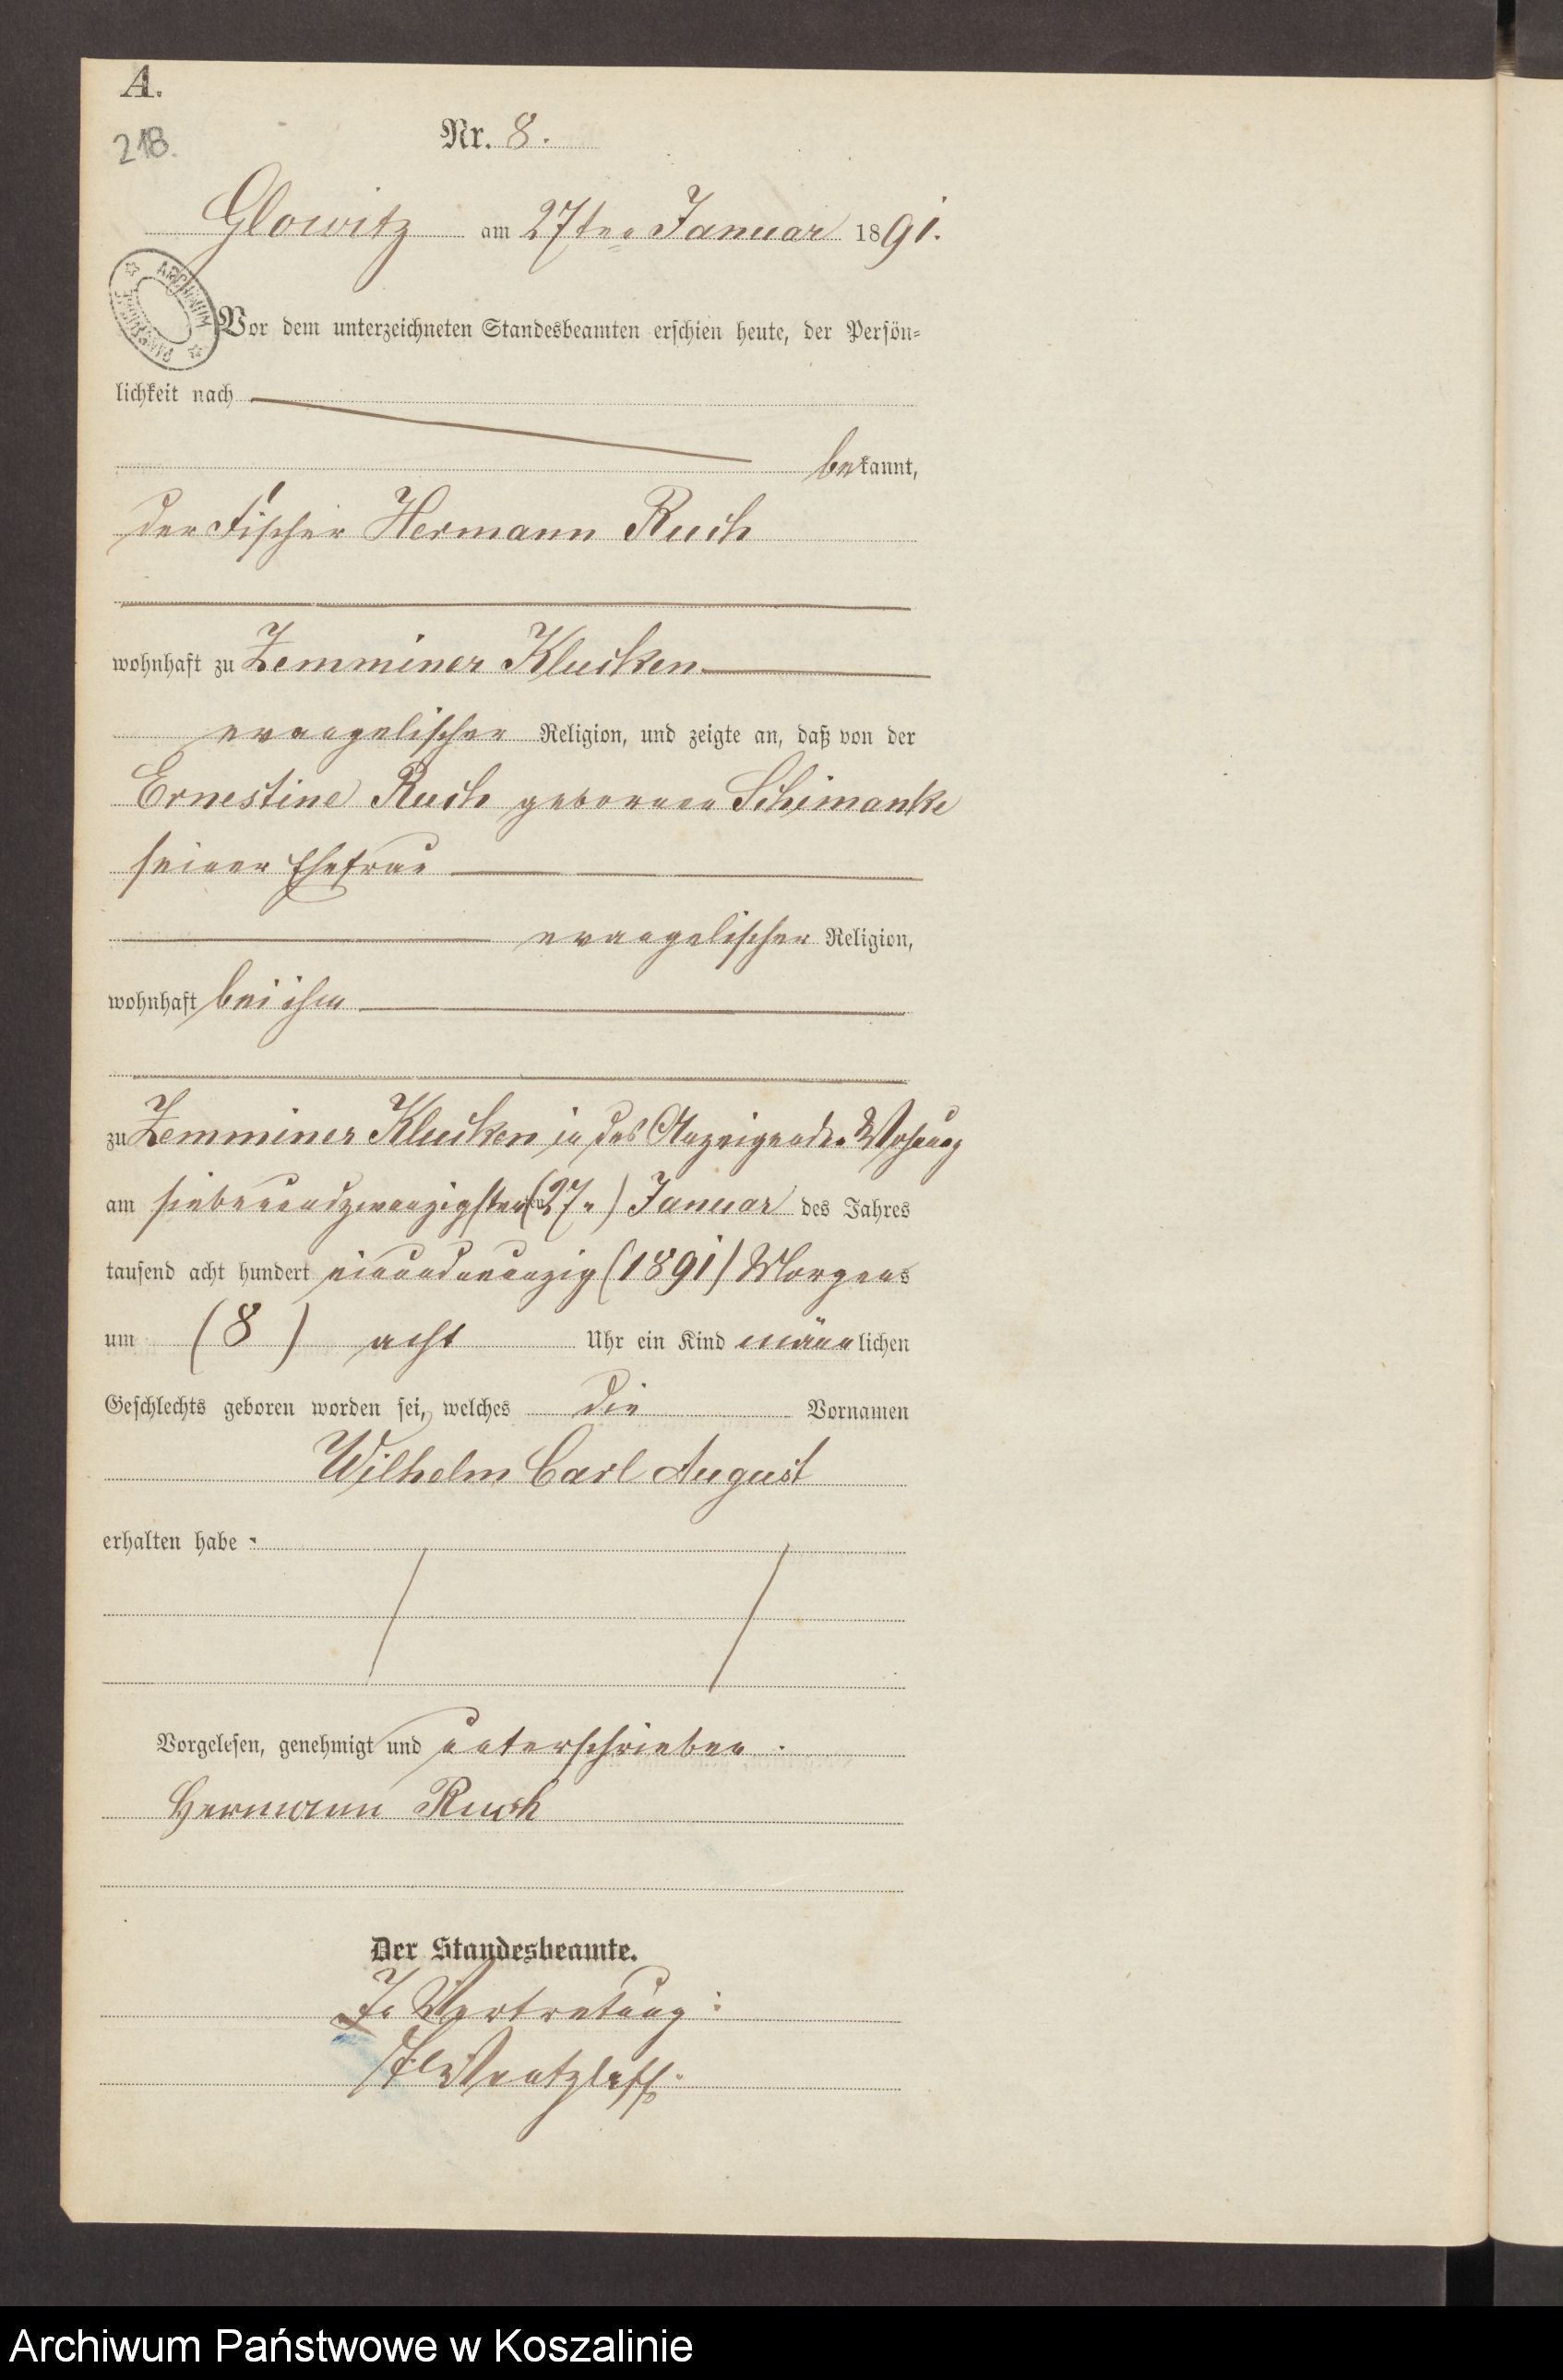 A.
218.
Nr. 8.
Glowitz am 27ten Januar 1891.
ARCHIWUM PAŃSTWOWE
Vor dem unterzeichneten Standesbeamten erschien heute, der Persön-
lichkeit nach
bekannt,
der Fischer Hermann Ruch
wohnhaft zu Zemminer Klucken
evangelischer Religion, und zeigte an, daß von der
Ernestine Ruch geborenen Schimanke
seiner Ehefrau
evangelischer Religion,
wohnhaft bei ihm
zu Zemminer Klucken in des Anzeigenden Wohnung
am siebenundzwanzigsten (27ten) Januar des Jahres
tausend acht hundert einundneunzig (1891) Morgens
um (8) acht Uhr ein Kind männlichen
Geschlechts geboren worden sei, welches die Vornamen
Wilhelm Carl August
erhalten habe.
Vorgelesen, genehmigt und unterschrieben.
Hermann Ruch
Der Standesbeamte.
In Vertretung:
Wentzlaff.
Archiwum Państwowe w Koszalinie